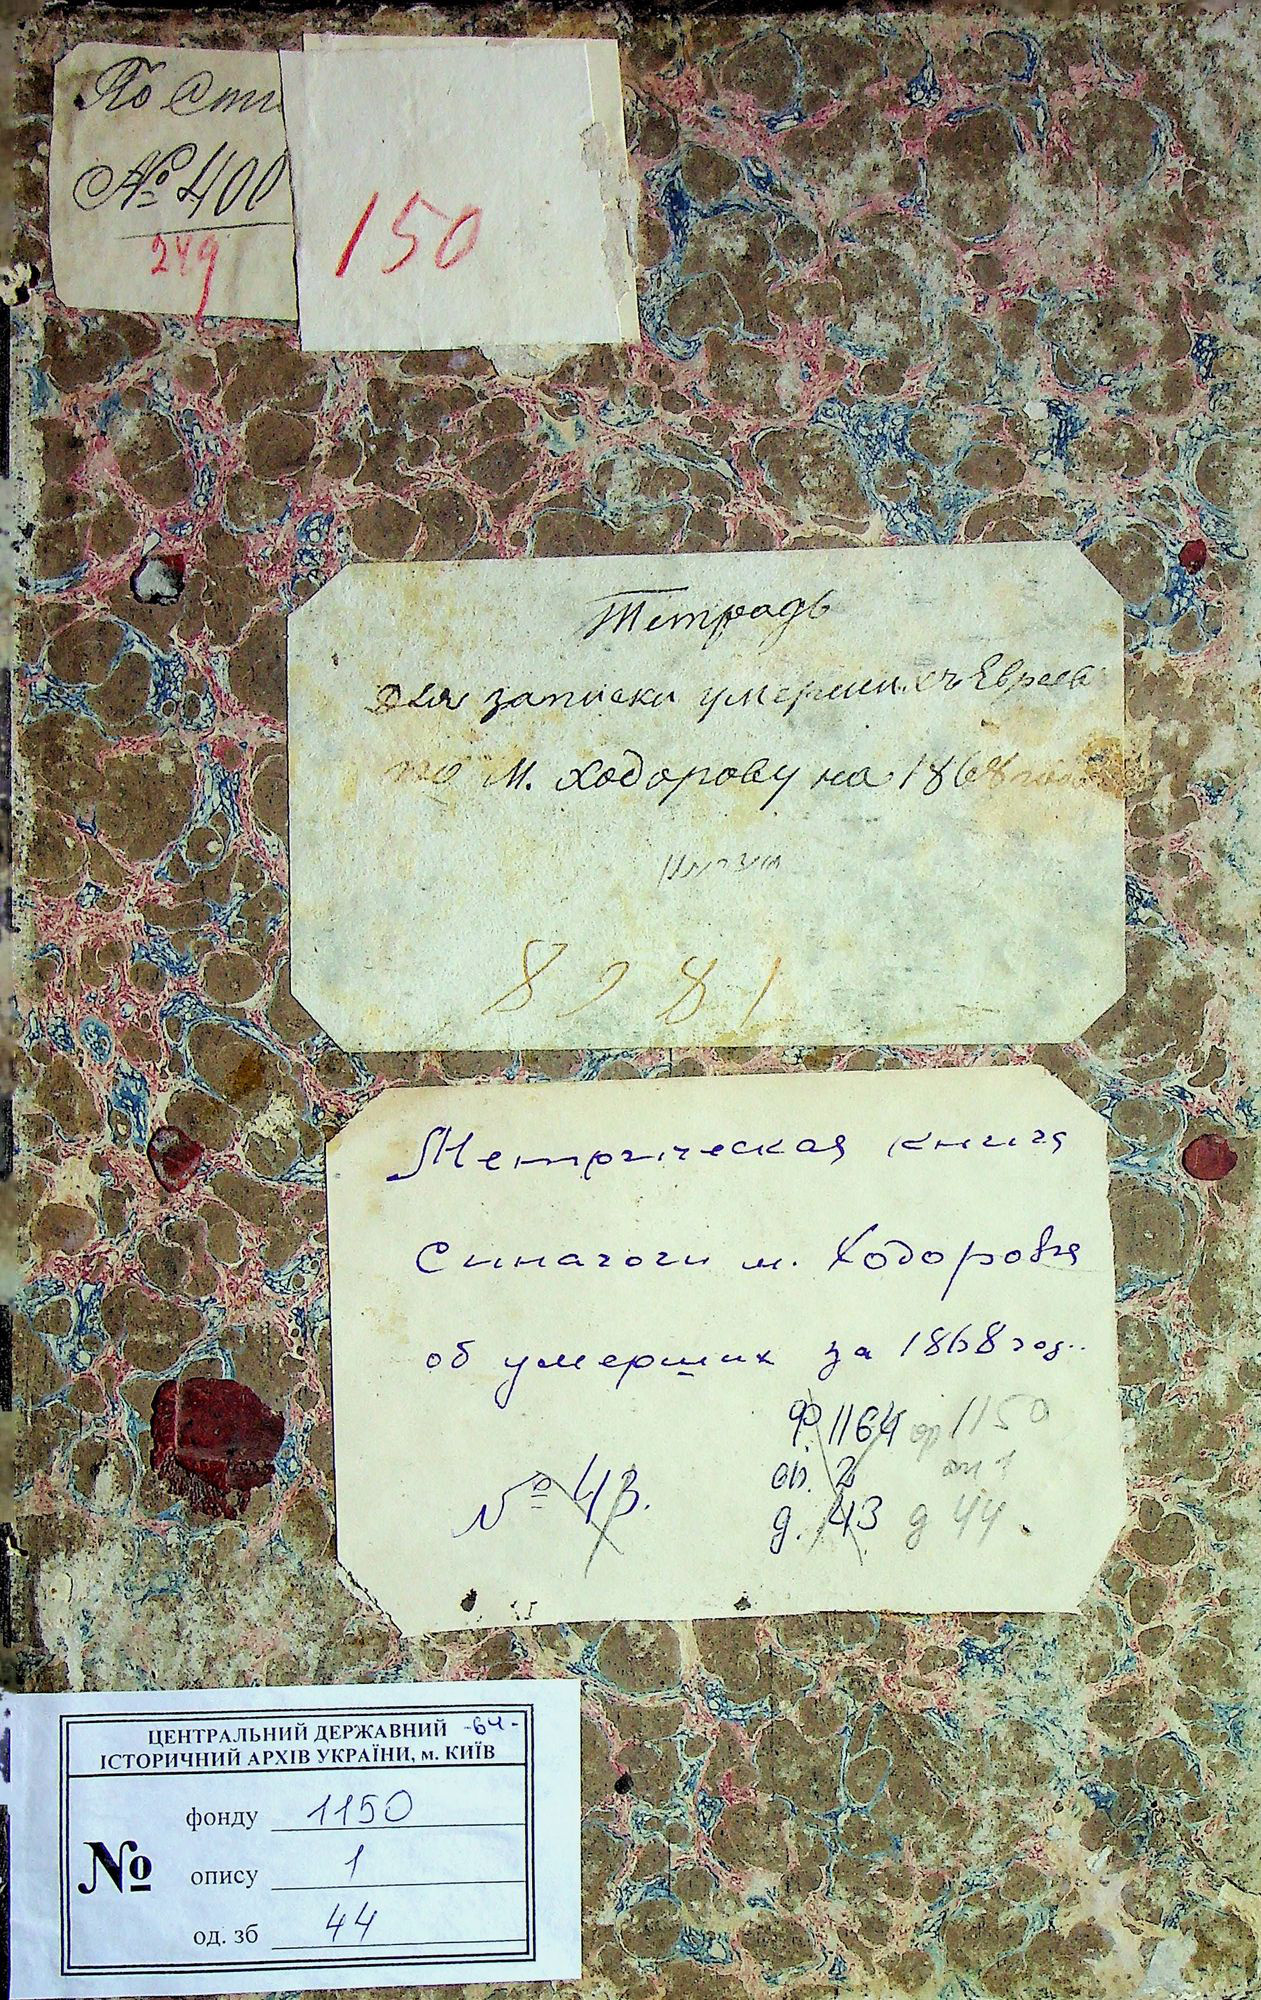 По Опи
№ 400
249
150
Тетрадь
для записки умерших Евреев
по м. Ходорову на 1868 год
8281
Метрическая книга
Синагоги м. Ходорова
об умерших за 1868 год.
ф. 1164 ф 1150
оп. 2 оп 1
№ 43.
д. 43 д 44
ЦЕНТРАЛЬНИЙ ДЕРЖАВНИЙ -64-
ІСТОРИЧНИЙ АРХІВ УКРАЇНИ, м. КИЇВ
№
фонду 1150
опису 1
од. зб 44